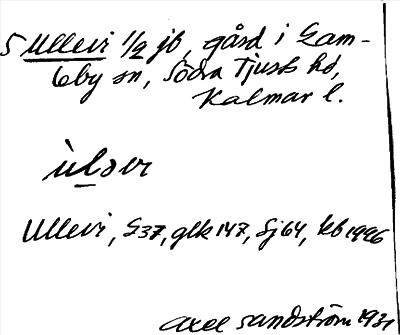 5 Ullevi 1/2 jb, gård i Gam-
leby sn, Södra Tjusts hd,
Kalmar l.
ùləvi
Ullevi, G37, glk 147, Sj64, kb 1996
Axel Sandström 1931